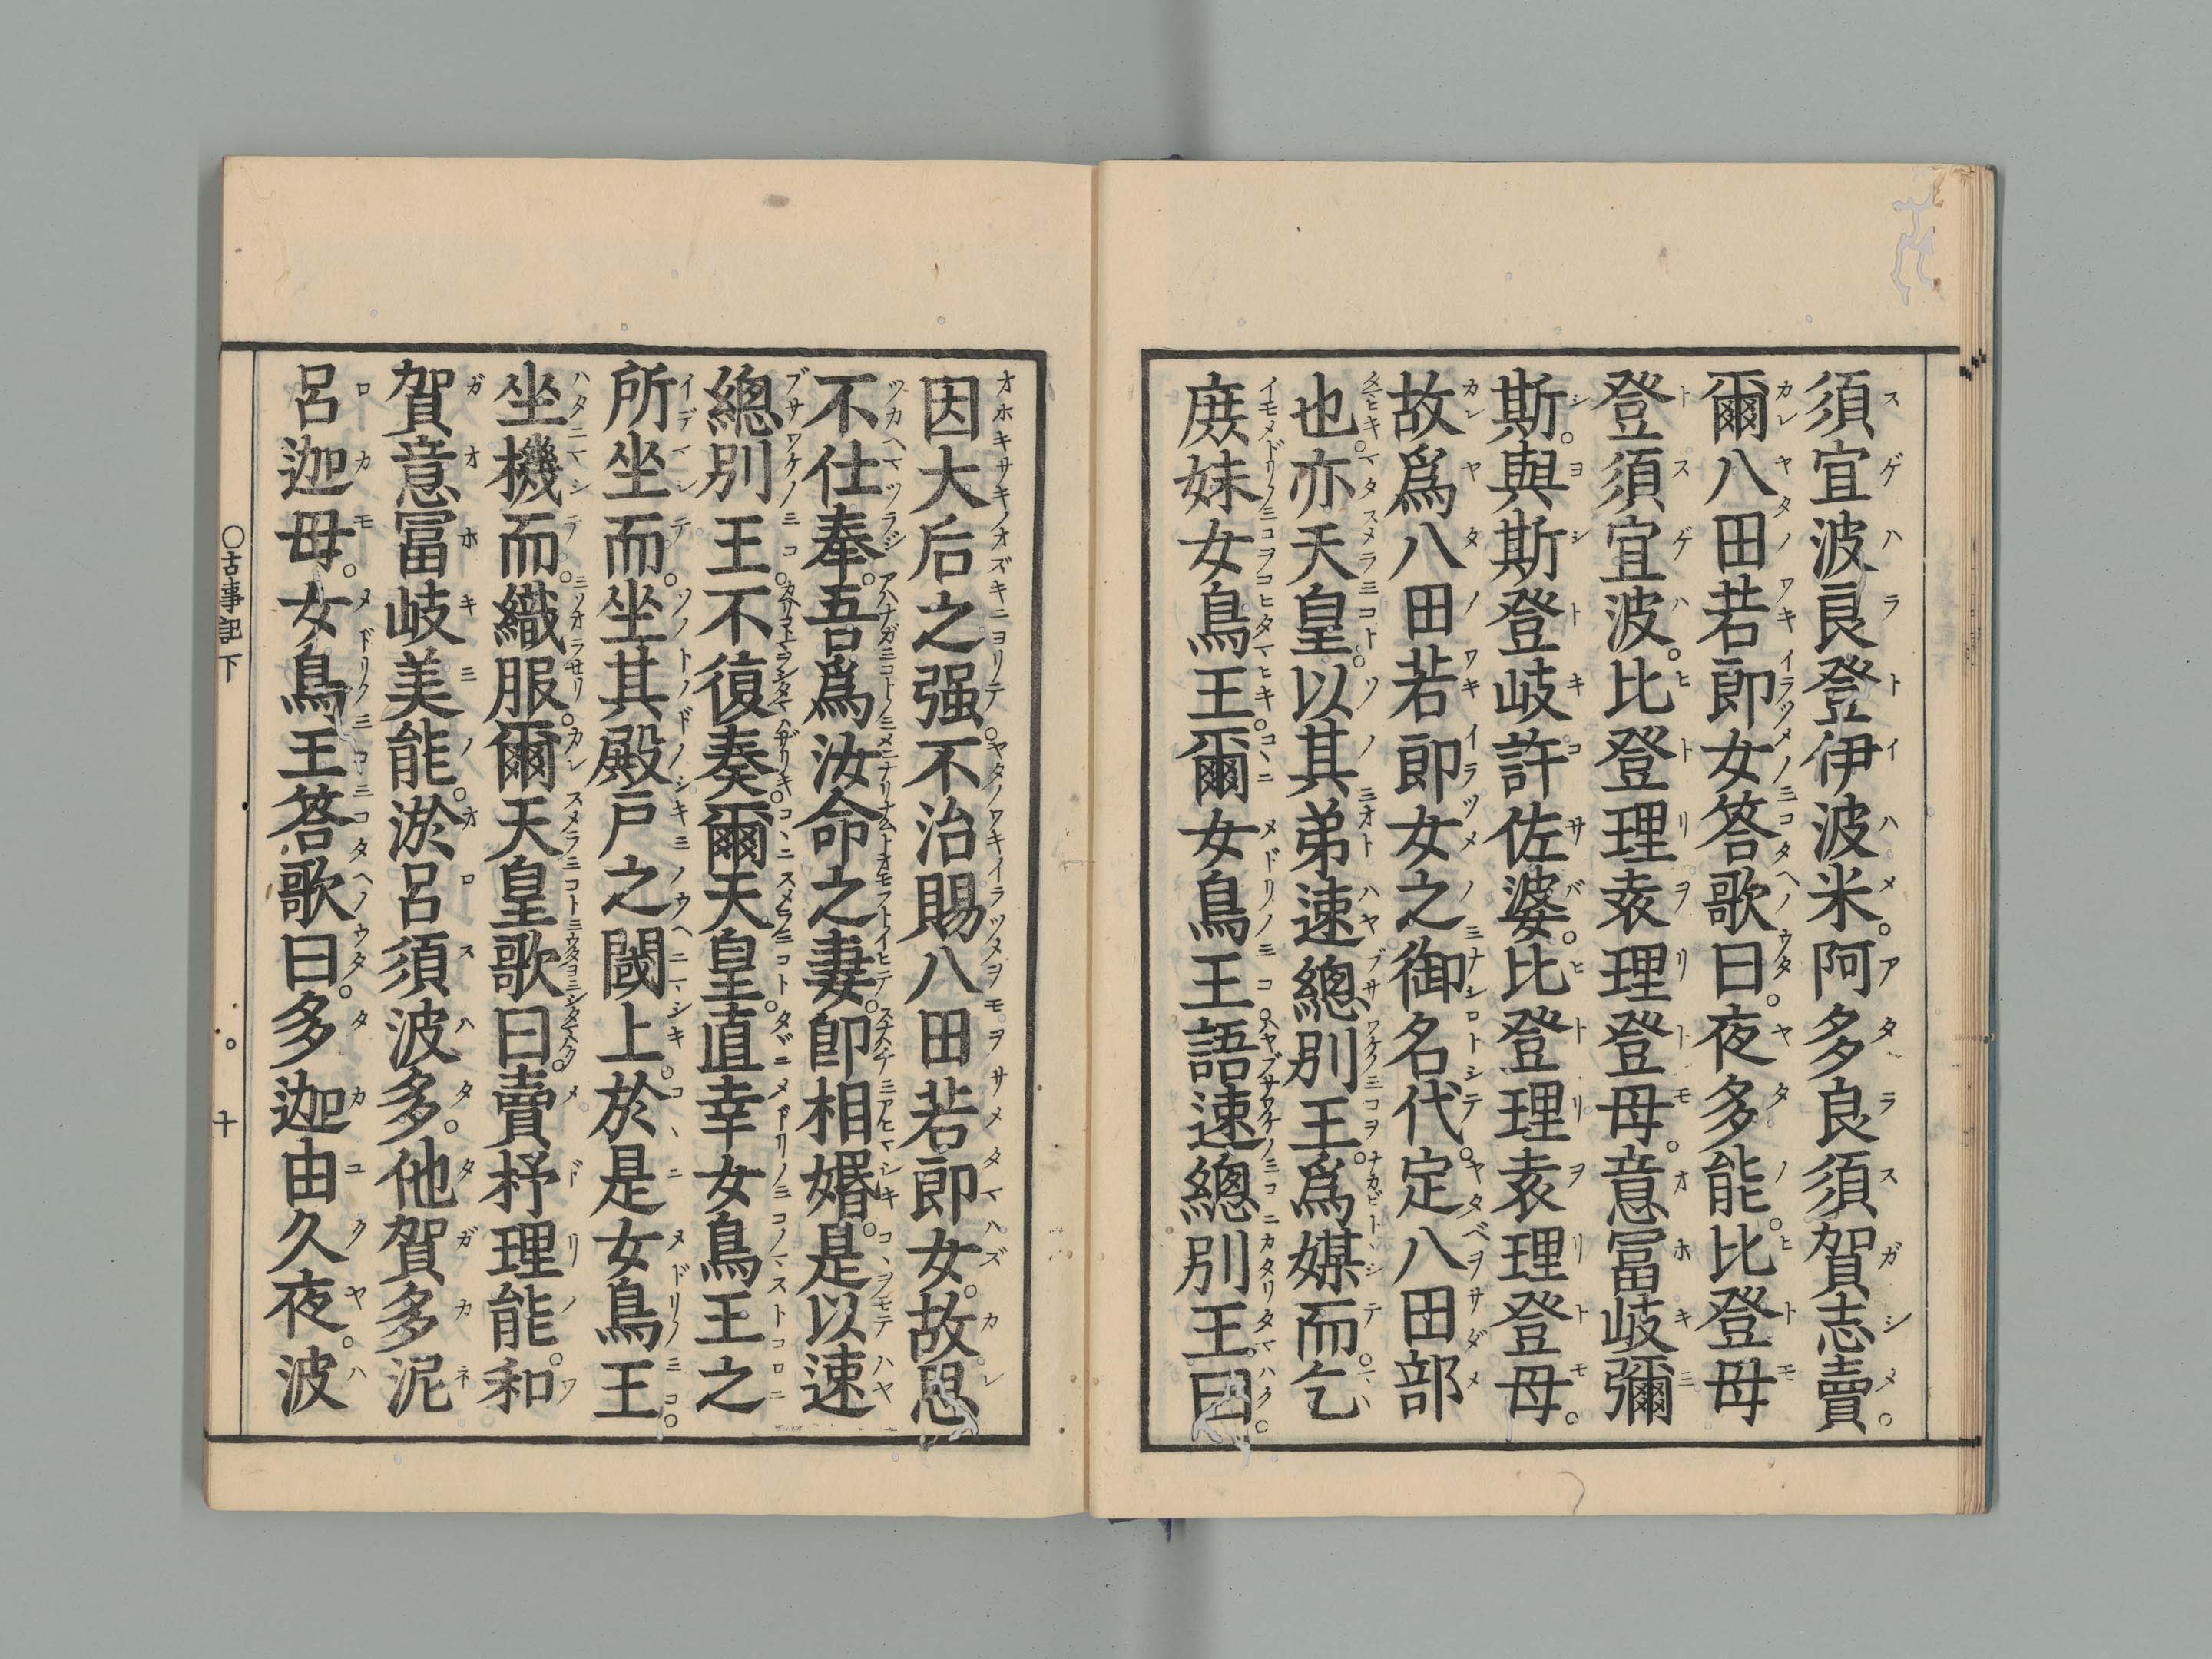 須宜波良登伊波米。阿多良須賀志賣。
爾八田若郎女答歌曰。夜多能。比登母
登須宜波。比登理袁理登母。意富岐彌
斯。與斯登岐許佐婆。比登理袁理登母。
故爲八田若郎女之御名代。定八田部
也。亦天皇。以其弟速總別王。爲媒而。乞
庶妹女鳥王。爾女鳥王。語速總別王。曰。
因大后之强。不治賜八田若郎女。故思
不仕奉。吾爲汝命之妻。卽相婚。是以速
總別王。不復奏。爾天皇。直幸女鳥王之
所坐而。坐其殿戸之閾上。於是女鳥王。
坐機而。織服。爾天皇歌曰。賣杼理能。和
賀意富岐美能。淤呂須波多。他賀多泥
呂迦母。女鳥王答歌曰。多迦由久夜。波
〇古事記下 十